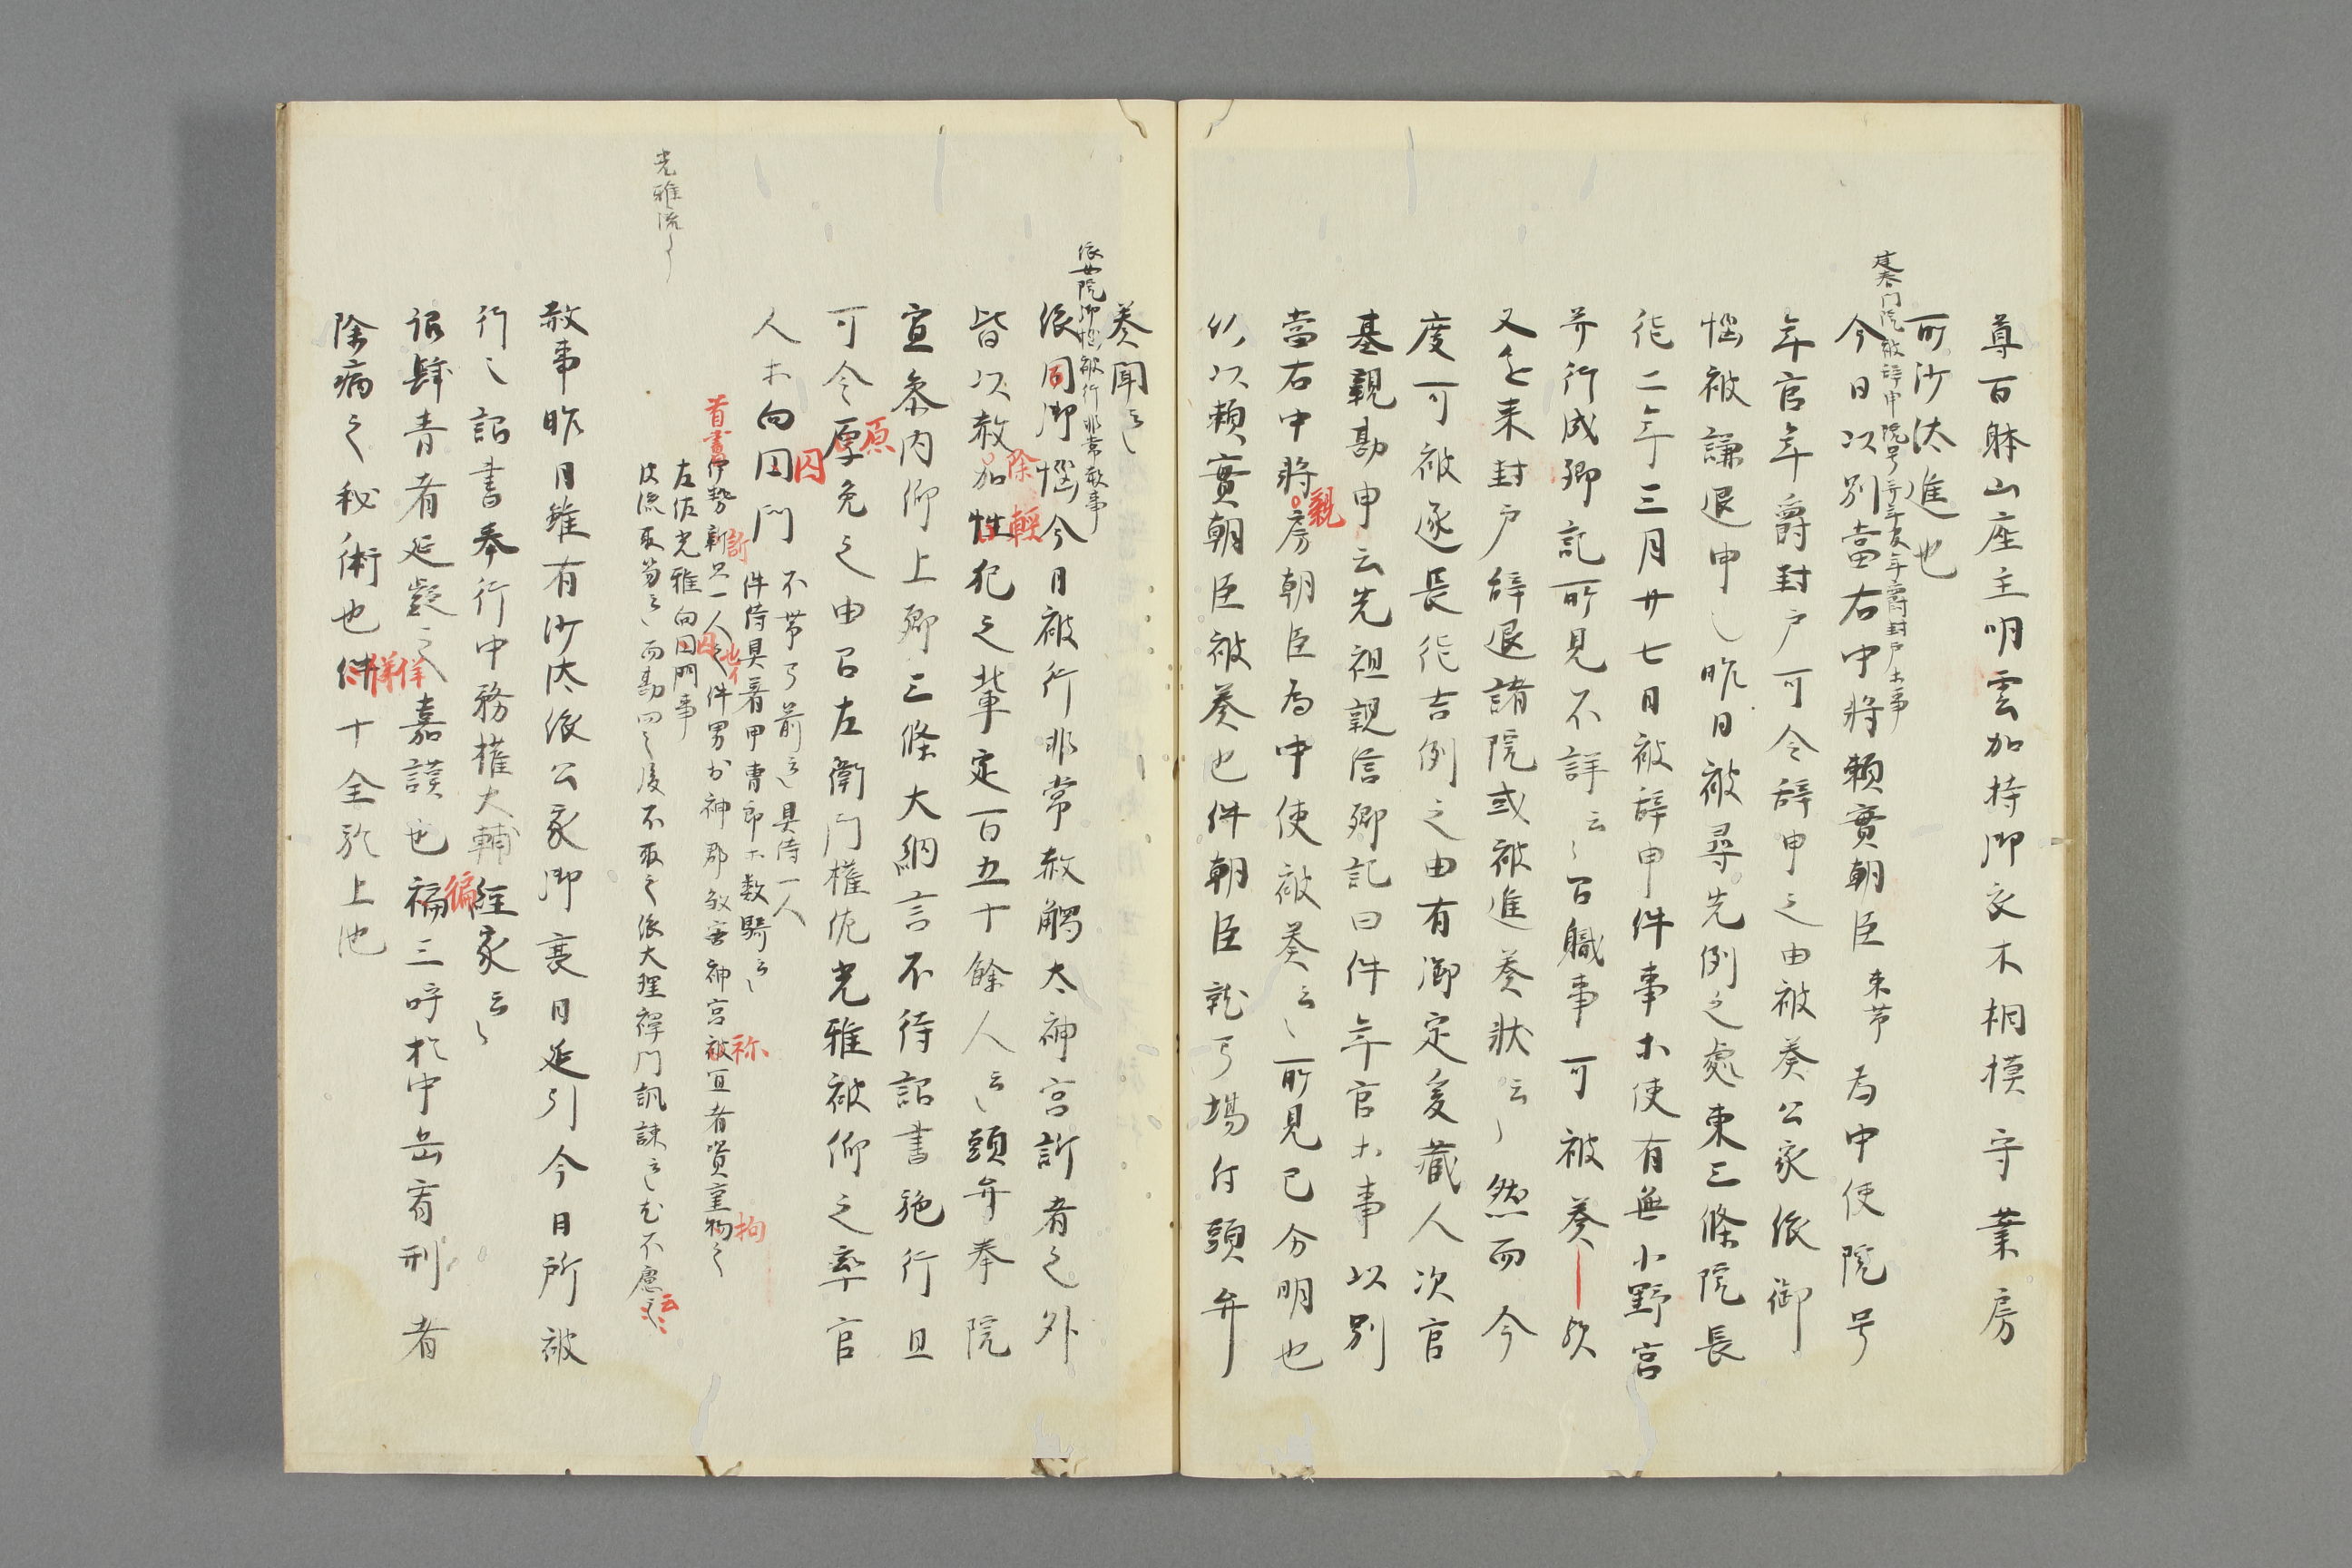 尊百躰山座主明雲加持御衣木相模守業房
可沙汰進也
建春門院被辞申院号年官年爵封戸ホ事
今日以別當右中将頼實朝臣 束帯 為中使院号
年官年爵封戸可令辞申之由被奏公家依御
悩被謙退申也昨日被尋先例之處東三條院長
徳二年三月廿七日被辞申件事ホ使有無小野宮
并行成卿記所見不詳云々百職事可被奏｜欤
又近来封戸辞退諸院或被進奏状云々然而今
度可被逐長徳吉例之由有御定爰蔵人次官
基親勘申云先祖親信卿記曰件年官ホ事以別
當右中将 親 房朝臣為中使被奏云々所見已分明也
仍以頼實朝臣被奏也件朝臣就弓場付頭弁
奏聞云々
依女院御悩被行非常赦事
依同御悩今日被行非常赦觸太神宮訴者之外
皆以赦 除 加 輕 犯之輩定百五十餘人云々頭弁奉院
宣参内仰上卿三條大納言不待詔書施行且
可令厚 原 免之由召左衛門權佐光雅被仰之率官
人ホ向囚 囚 門 不帯弓箭云々具侍一人
件侍具着甲冑郎ホ数騎云々
首書 伊勢 訴 人 件男於神郡 神宮被 祢 宜者賃重物 拘 之
左佐光雅向囚門事
光雅流々
後不取之依大理禅門諷諫云々尤不慮 云々
赦事昨日雖有沙汰依公家御衰日延引今日所被
行之詔書奉行中務權大輔經家云々
詔肆眚者延齢之嘉謨也福 偏 三呼於中岳宥刑者
除病之秘術也 佯 十全於上池